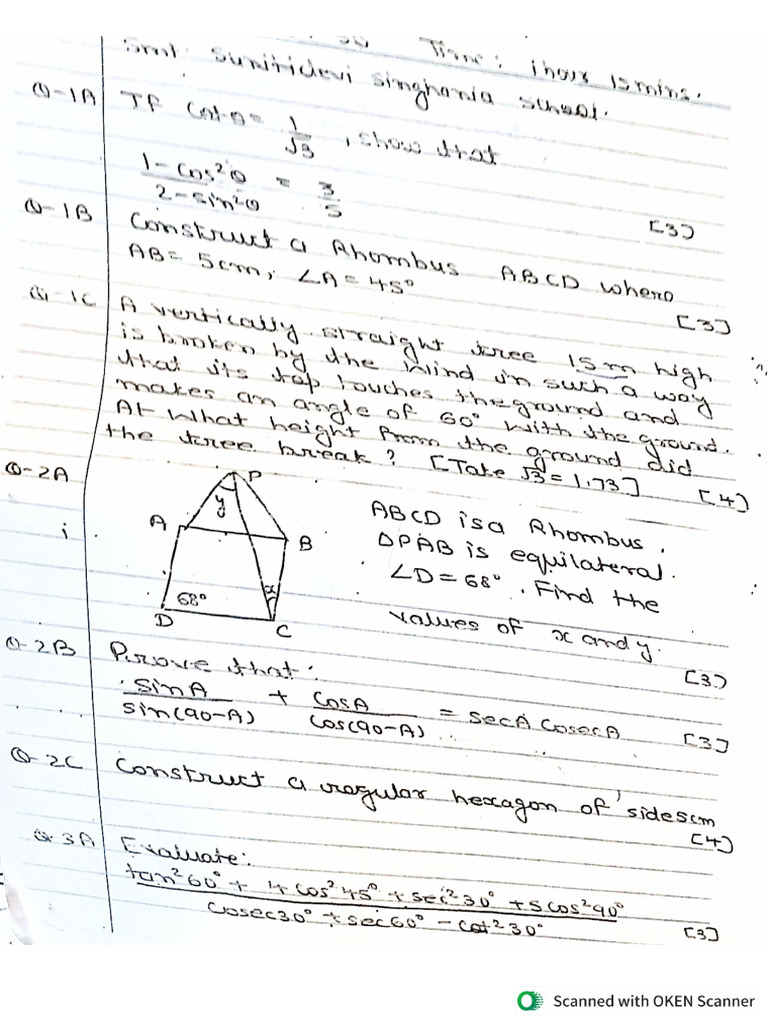 Time: 1hour 15mins.
Smt. Sunitidevi Singhania School.
Q-1A If Cot θ = 1/√3, show that
1-cos²θ / 2-sin²θ = 3/5 [3]
Q-1B Construct a Rhombus ABCD where
AB = 5cm, ∠A = 45° [3]
Q-1C A vertically straight tree 15m high
is broken by the wind in such a way
that its top touches the ground and
makes an angle of 60° with the ground.
At what height from the ground did
the tree break? [Take √3 = 1.73] [4]
Q-2A
i
P
y
A
B
x
68°
D
C
ABCD is a Rhombus.
△PAB is equilateral.
∠D = 68°. Find the
values of x and y. [3]
Q-2B Prove that:
sinA / sin(90-A) + CosA / Cos(90-A) = secA CosecA [3]
Q-2C Construct a regular hexagon of side5cm
[4]
Q-3A Evaluate:
tan²60° + 4cos²45° + sec²30° + 5cos²90° / Cosec30° + sec60° - cot²30° [3]
Scanned with OKEN Scanner